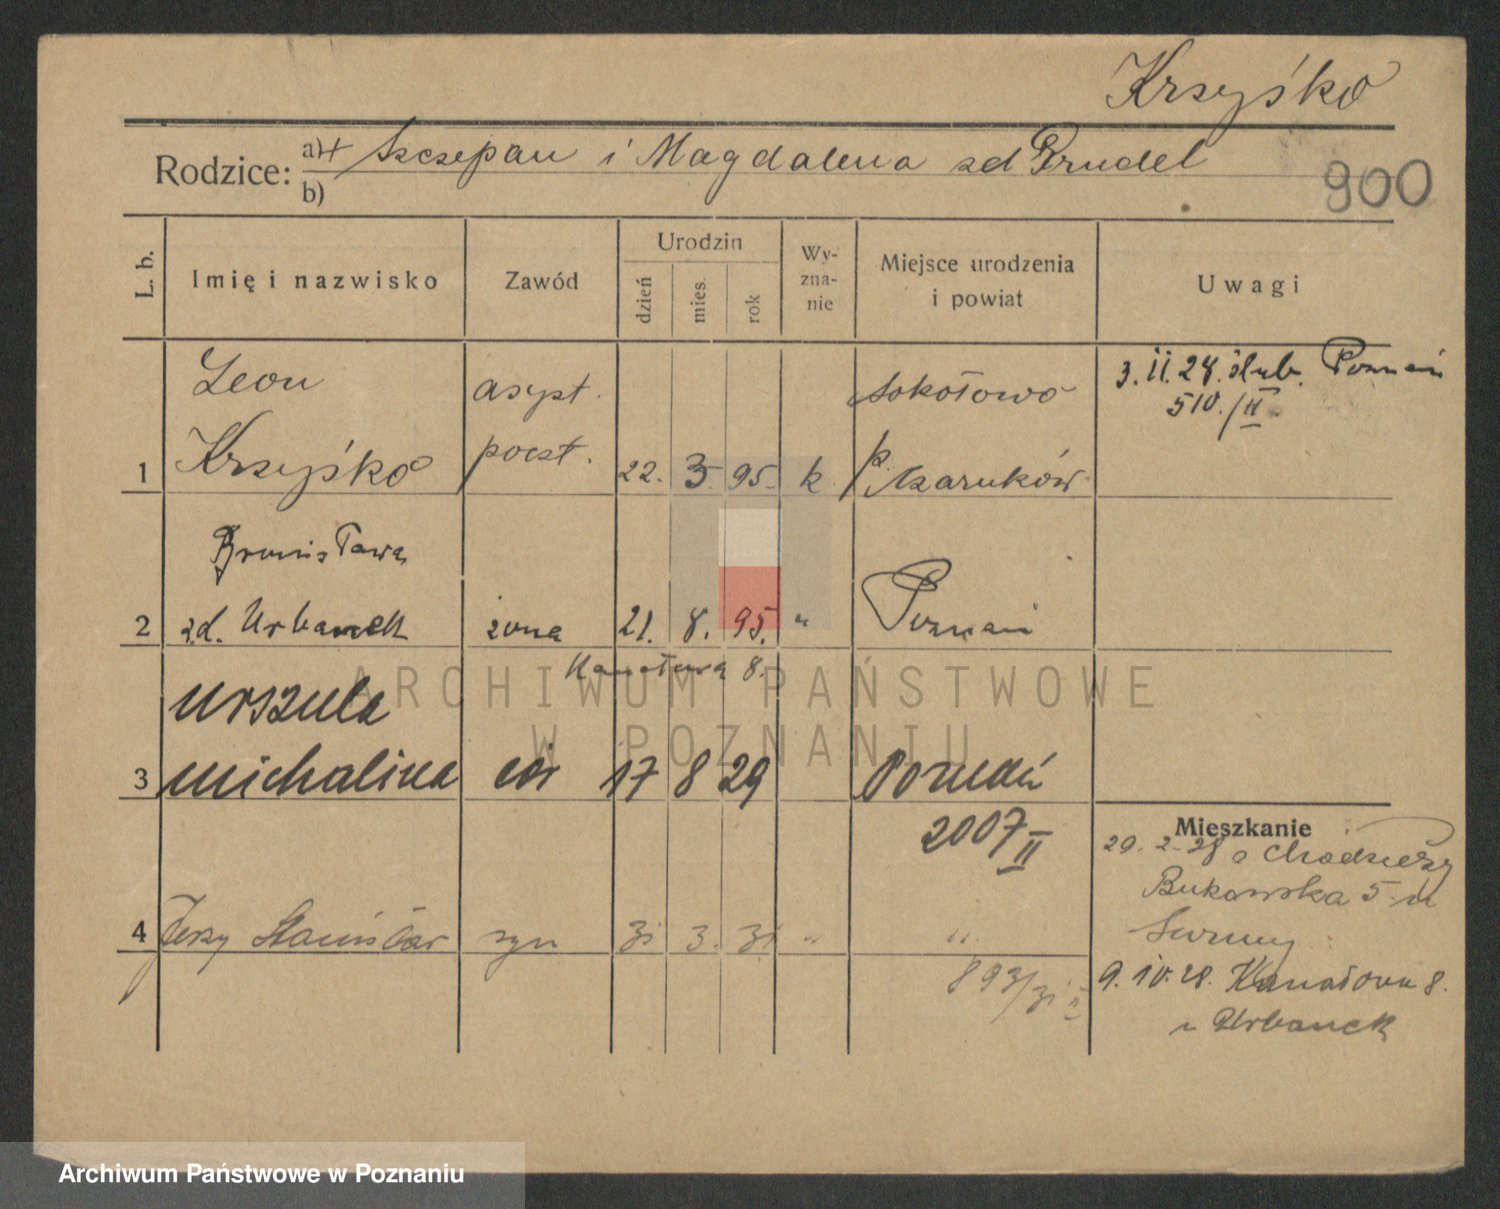 Krzyśko
Rodzice: a) + Szczepan i Magdalena zd Prudel
b)
900
L. b.
Imię i nazwisko
Zawód
Urodzin
dzień
mies.
rok
Wy-
zna-
nie
Miejsce urodzenia
i powiat
Uwagi
Leon asyst. Sokołowo 3.II.28. ślub. Poznań
510./II
1 Krzyśko poczt. 22. 3 95. k p. Czarnków
Bronisława
2 zd. Urbanek żona 21. 8. 95. " Poznań
Kanałowa 8.
Urszula
3 Michalina cór 17 8 29 Poznań
2007/II
Mieszkanie
29.2.28 z Chodzieży
Bukowska 5 u
4 Jerzy Stanisław syn 31 3. 31 " "
893/31 II
9.IV.28. Kanałowa 8.
u Urbanek
ARCHIWUM PAŃSTWOWE
W POZNANIU
Archiwum Państwowe w Poznaniu